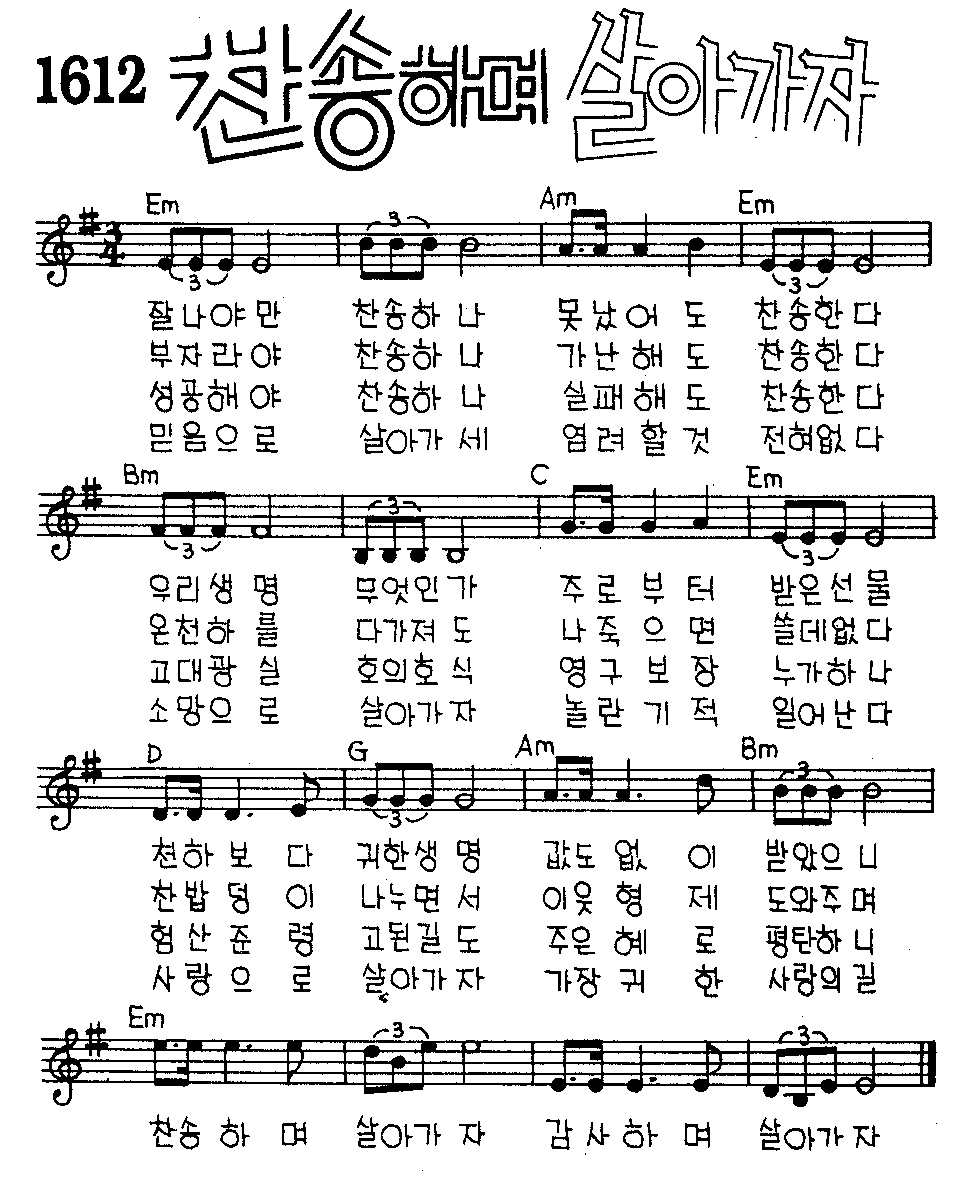 1612 찬송하며 살아가자
Em 3 3 Am Em 3
3/4
잘나야만 찬송하나 못났어도 찬송한다
부자라야 찬송하나 가난해도 찬송한다
성공해야 찬송하나 실패해도 찬송한다
믿음으로 살아가세 염려할것 전혀없다
Bm 3 3 C Em 3
우리생명 무엇인가 주로부터 받은선물
온천하를 다가져도 나죽으면 쓸데없다
고대광실 호의호식 영구보장 누가하나
소망으로 살아가자 놀란기적 일어난다
D G 3 Am Bm 3
천하보다 귀한생명 값도없이 받았으니
찬밥덩이 나누면서 이웃형제 도와주며
험산준령 고된길도 주은혜로 평탄하니
사랑으로 살아가자 가장귀한 사랑의길
Em 3 3
찬송하며 살아가자 감사하며 살아가자